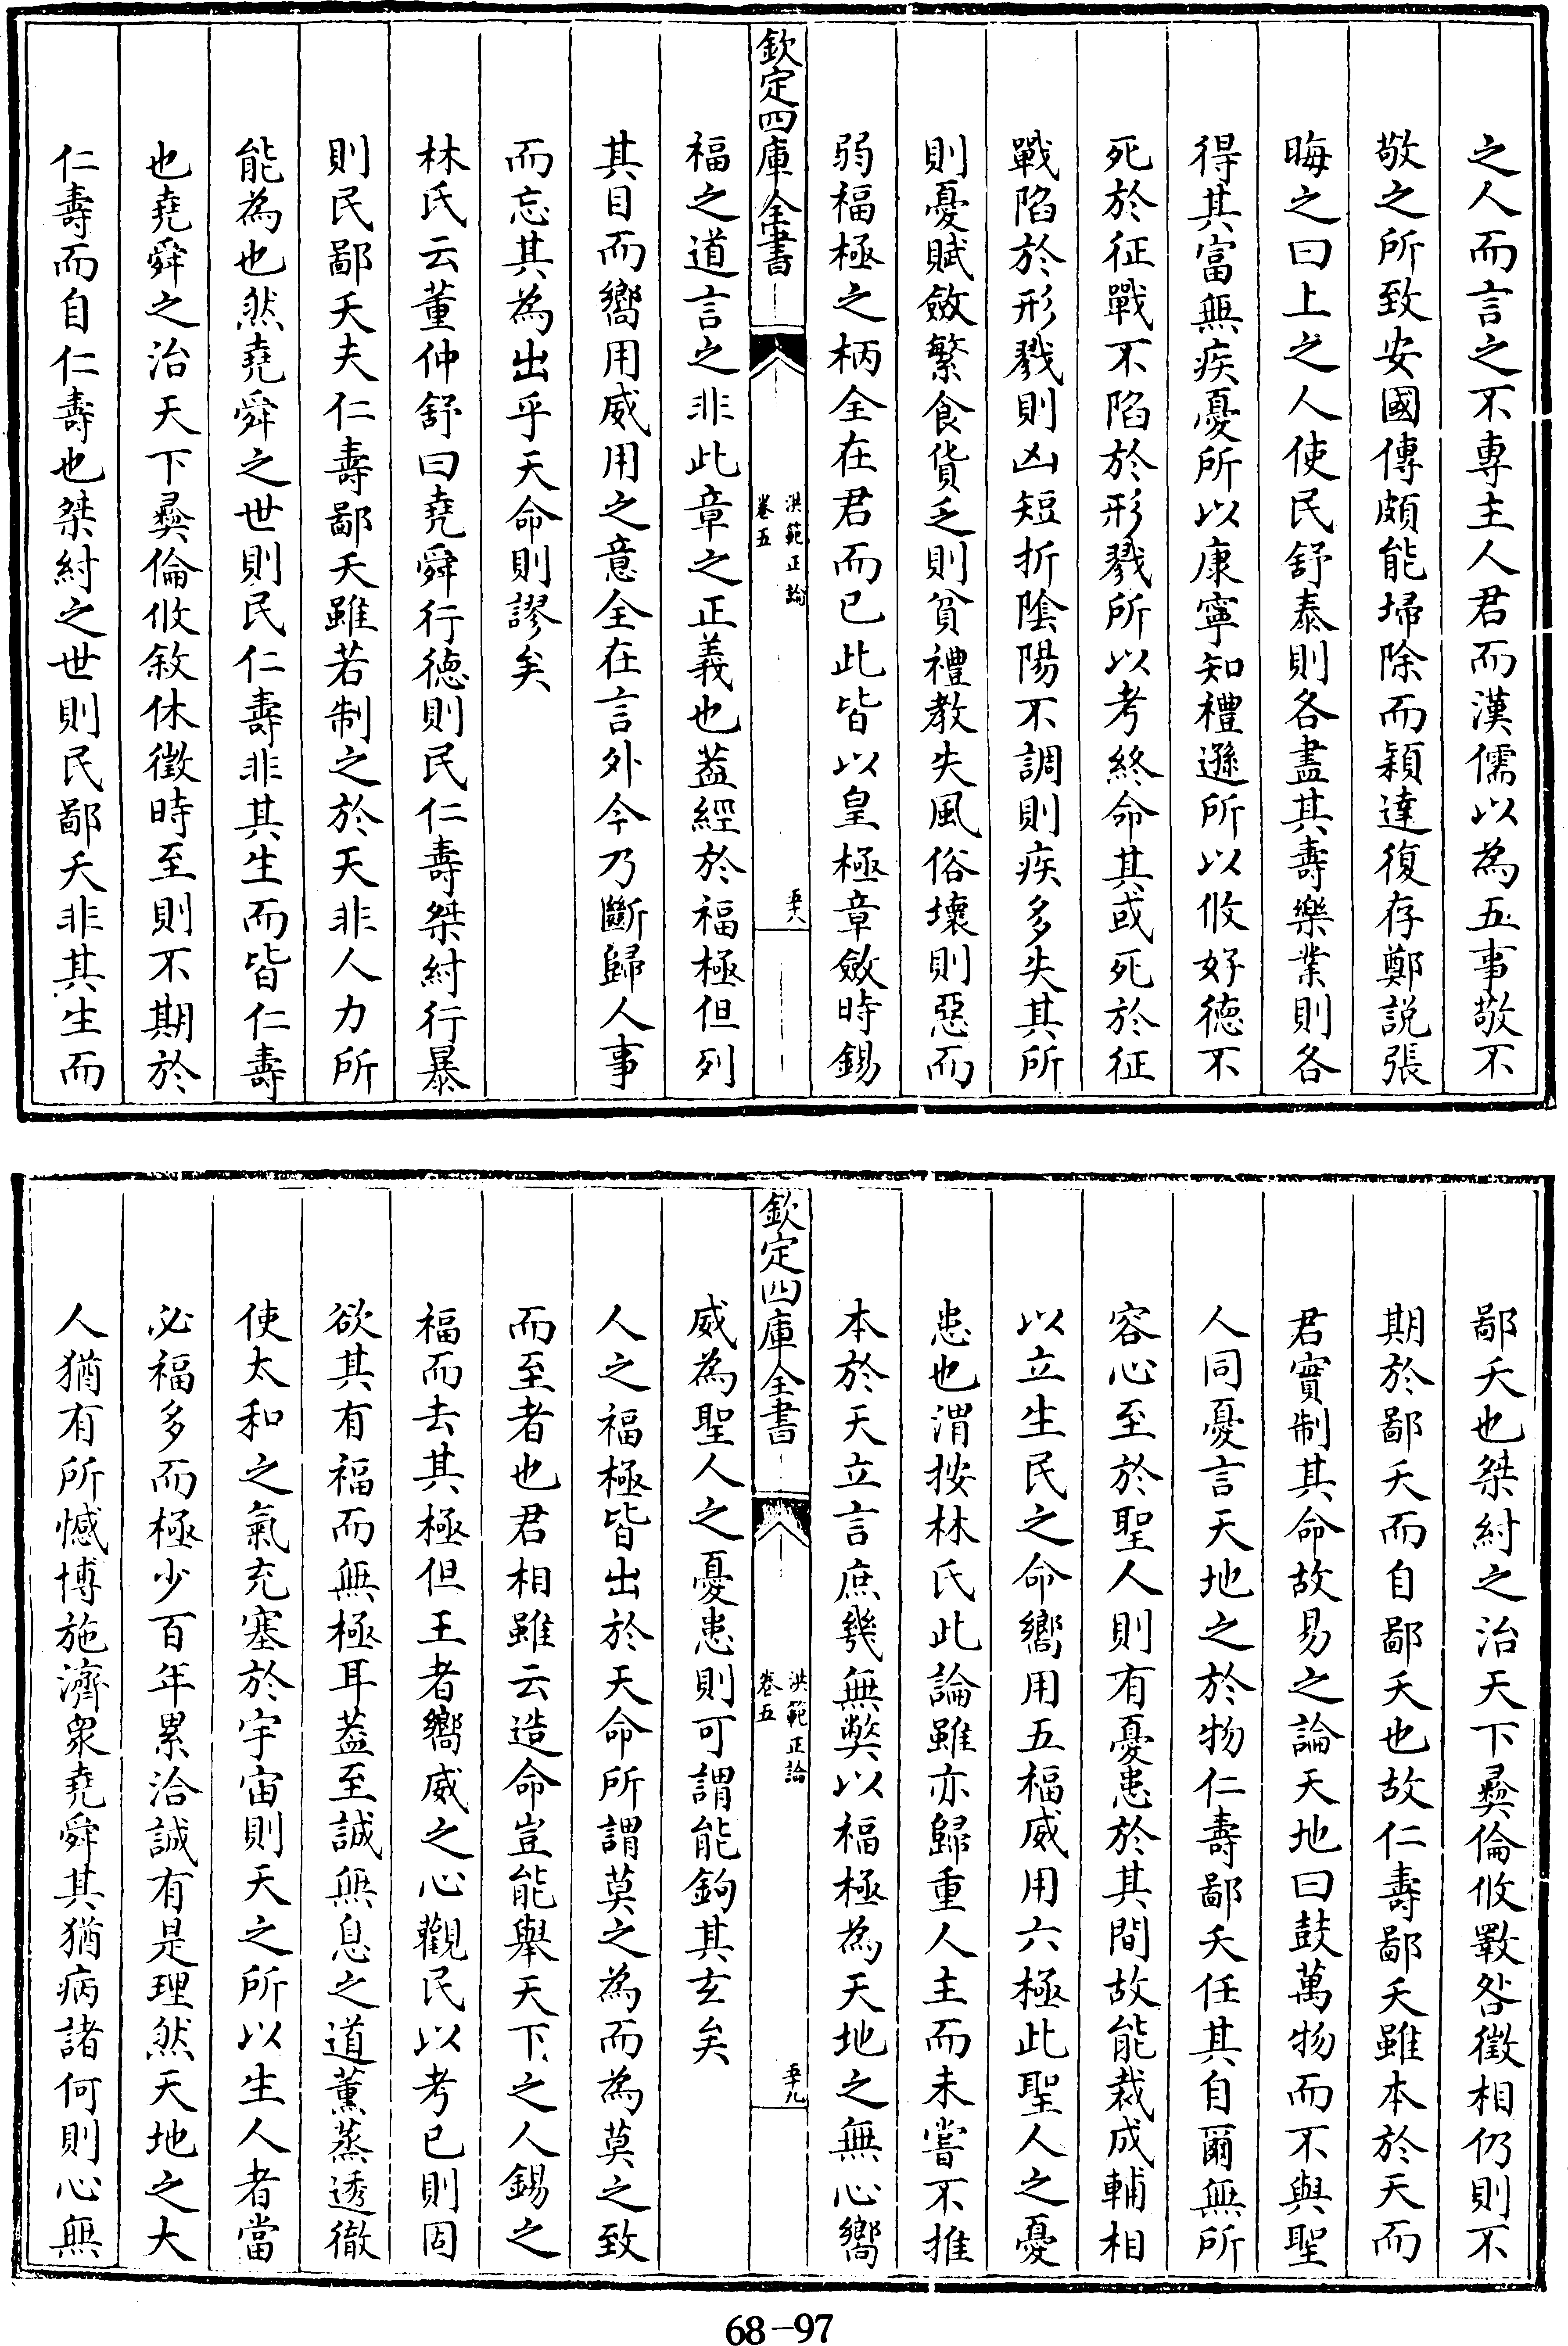 之人而言之不專主人君而漢儒以為五事敬不
敬之所致安國傳頗能埽除而穎達復存鄭説張
晦之曰上之人使民舒泰則各盡其壽樂業則各
得其富無疾憂所以康寧知禮遜所以攸好德不
死於征戰不陷於形戮所以考終命其或死於征
戰陷於形戮則凶短折陰陽不調則疾多失其所
則憂賦斂繁食貨乏則貧禮教失風俗壞則惡而
弱福極之柄全在君而已此皆以皇極章斂時錫
欽定四庫全書
洪範正論
卷五
五十八
福之道言之非此章之正義也葢經於福極但列
其目而嚮用威用之意全在言外今乃斷歸人事
而忘其為出乎天命則謬矣
林氏云董仲舒曰堯舜行德則民仁壽桀紂行暴
則民鄙夭夫仁壽鄙夭雖若制之於天非人力所
能為也然堯舜之世則民仁壽非其生而皆仁壽
也堯舜之治天下彝倫攸敘休徵時至則不期於
仁壽而自仁壽也桀紂之世則民鄙夭非其生而
鄙夭也桀紂之治天下彝倫攸斁咎徵相仍則不
期於鄙夭而自鄙夭也故仁壽鄙夭雖本於天而
君實制其命故易之論天地曰鼓萬物而不與聖
人同憂言天地之於物仁壽鄙夭任其自爾無所
容心至於聖人則有憂患於其間故能裁成輔相
以立生民之命嚮用五福威用六極此聖人之憂
患也渭按林氏此論雖亦歸重人主而未嘗不推
本於天立言庶幾無弊以福極為天地之無心嚮
欽定四庫全書
洪範正論
卷五
五十九
威為聖人之憂患則可謂能鉤其玄矣
人之福極皆出於天命所謂莫之為而為莫之致
而至者也君相雖云造命豈能舉天下之人錫之
福而去其極但王者嚮威之心觀民以考已則固
欲其有福而無極耳葢至誠無息之道薰蒸透徹
使太和之氣充塞於宇宙則天之所以生人者當
必福多而極少百年累洽誠有是理然天地之大
人猶有所憾博施濟衆堯舜其猶病諸何則心無
68-97